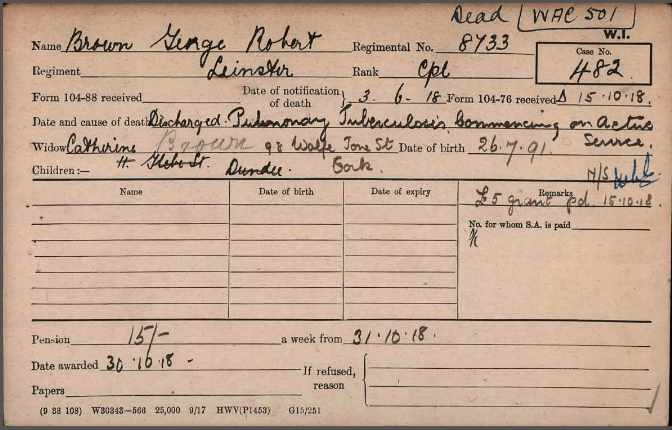 Dead WAC 501
W.I.
Name Brown George Robert Regimental No. 8733 Case No.
Regiment Leinster Rank Cpl 482.
Form 104-88 received Date of notification of death } 3. 6- 18 Form 104-76 received 15.10.18.
Date and cause of death Discharged. Pulmonary Tuberculosis Commencing on Active
Widow Catherine Brown 98 Wolfe Tone St. Date of birth 26.7.91. Service.
Children :— H. Glebe St. Dundee. Cork.
N/S
Name Date of birth Date of expiry Remarks
£5 grant pd. 15.10.18.
No. for whom S.A. is paid
Pension 15/- a week from 31.10.18.
Date awarded 30.10.18 - If refused, reason
Papers
(9 38 108) W30343—566 25,000 9/17 HWV(P1453) G15/251